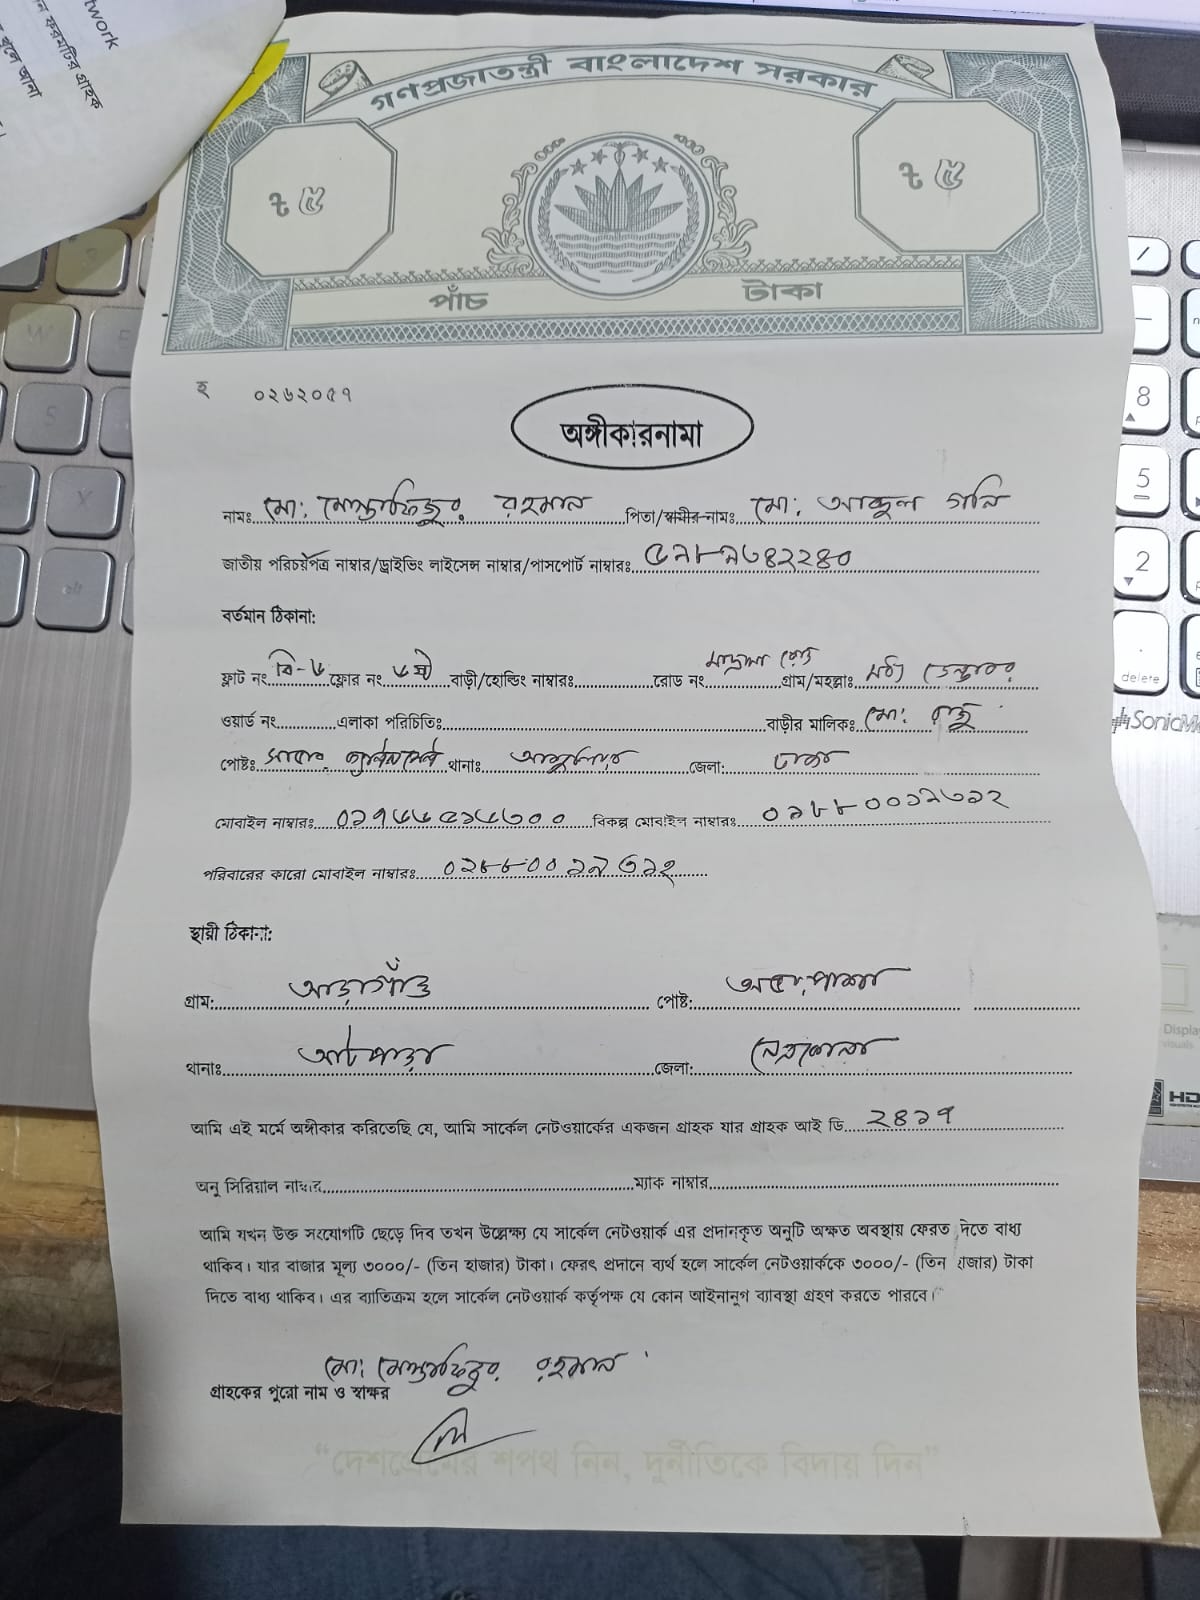 twork
ন ফরমটির গ্রাহক
খুলে আনা
গণপ্রজাতন্ত্রী বাংলাদেশ সরকার
৳ ৫
৳ ৫
পাঁচ টাকা
হ ০২৬২০৫৭
অঙ্গীকারনামা
নামঃ মো: মোস্তাফিজুর রহমান পিতা/স্বামীর নামঃ মো: আব্দুল গনি
জাতীয় পরিচয়পত্র নাম্বার/ড্রাইভিং লাইসেন্স নাম্বার/পাসপোর্ট নাম্বারঃ
বর্তমান ঠিকানা:
ফ্লাট নং বি-৬ ফ্লোর নং ৬ষ্ঠ বাড়ী/হোল্ডিং নাম্বারঃ রোড নং মাদ্রাসা রোড গ্রাম/মহল্লাঃ
ওয়ার্ড নং এলাকা পরিচিতিঃ বাড়ীর মালিকঃ মো: রাজু
পোষ্টঃ সাভার থানাঃ আশুলিয়া জেলা: ঢাকা
মোবাইল নাম্বারঃ বিকল্প মোবাইল নাম্বারঃ
পরিবারের কারো মোবাইল নাম্বারঃ
স্থায়ী ঠিকানা:
গ্রাম: পোষ্ট:
থানাঃ আটপাড়া জেলা: নেত্রকোনা
আমি এই মর্মে অঙ্গীকার করিতেছি যে, আমি সার্কেল নেটওয়ার্কের একজন গ্রাহক যার গ্রাহক আই ডি ২৪১৭
অনু সিরিয়াল নাম্বার ম্যাক নাম্বার
আমি যখন উক্ত সংযোগটি ছেড়ে দিব তখন উল্লেক্ষ্য যে সার্কেল নেটওয়ার্ক এর প্রদানকৃত অনুটি অক্ষত অবস্থায় ফেরত দিতে বাধ্য
থাকিব। যার বাজার মূল্য ৩০০০/- (তিন হাজার) টাকা। ফেরৎ প্রদানে ব্যর্থ হলে সার্কেল নেটওয়ার্ককে ৩০০০/- (তিন হাজার) টাকা
দিতে বাধ্য থাকিব। এর ব্যাতিক্রম হলে সার্কেল নেটওয়ার্ক কর্তৃপক্ষ যে কোন আইনানুগ ব্যাবস্থা গ্রহণ করতে পারবে।
মো: মোস্তাফিজুর রহমান
গ্রাহকের পুরো নাম ও স্বাক্ষর
“দেশপ্রেমের শপথ নিন, দুর্নীতিকে বিদায় দিন”
W
S
X
alt
8
5
2
delete
SonicMa
Display
visuals
HD